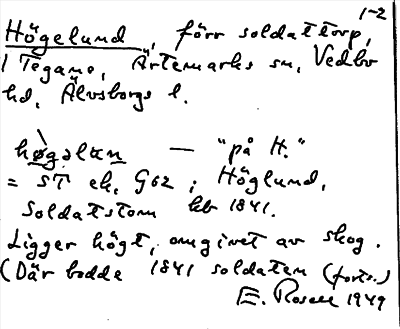 1-2
Högelund, förr soldattorp,
/ Tegane, Ärtemarks sn, Vedbo
hd, Älvsborgs l.
høgəlun — "på H."
= ST ek. G62; Höglund,
Soldatstom hb 1841.
Ligger högt, omgivet av skog.
(Där bodde 1841 soldaten (forts.)
E. Rosell 1949